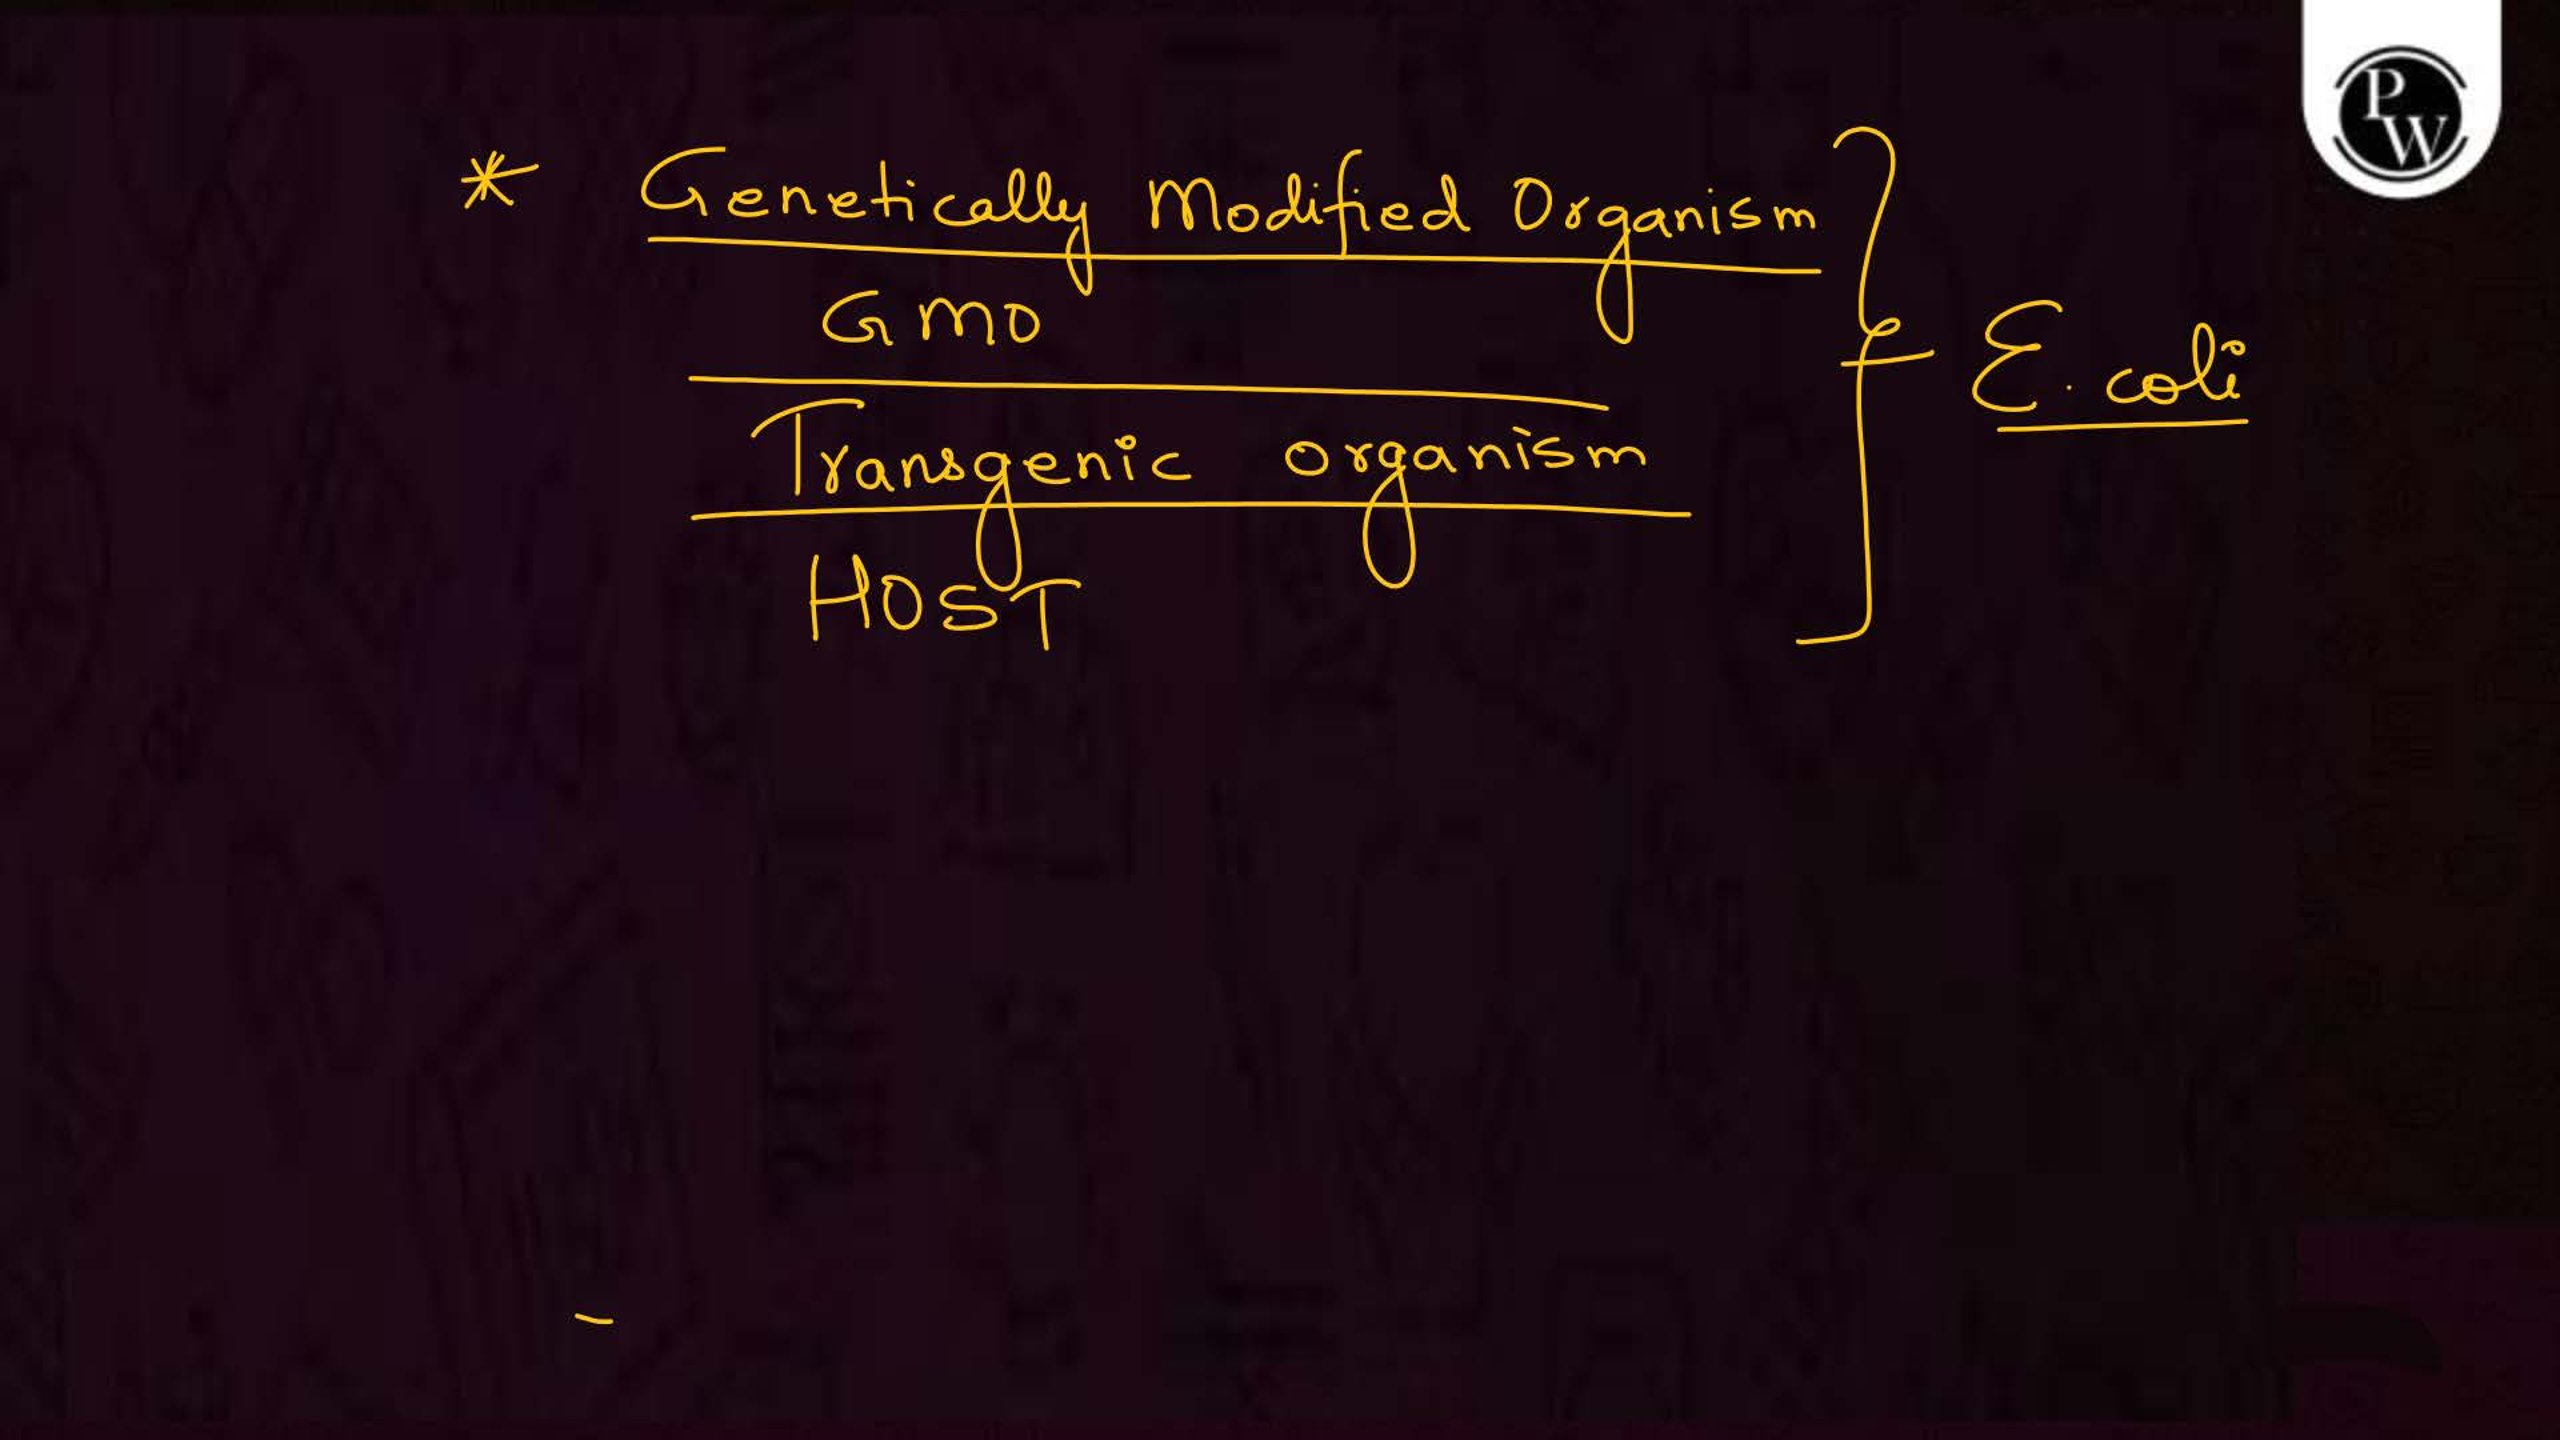 * Genetically Modified Organism
GMO
Transgenic organism
HOST
E. coli
PW